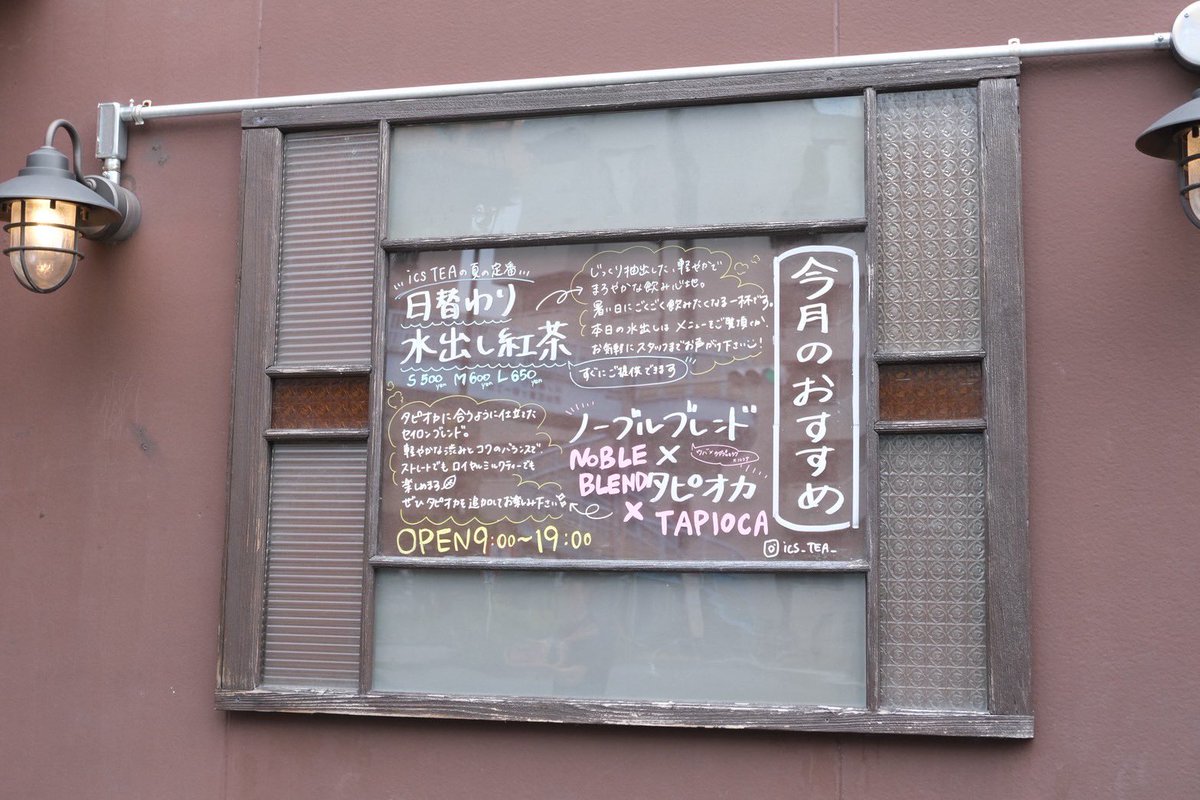 今月のおすすめ
ics TEAの夏の定番
日替わり
水出し紅茶
S 500yen M 600yen L 650yen
じっくり抽出した、軽やかで
まろやかな飲み心地。
暑い日にごくごく飲みたくなる一杯です。
本日の水出しは メニューをご覧頂くか、
お気軽にスタッフまでお声がけ下さい!
すぐにご提供できます
ノーブルブレンド
NOBLE × タピオカ
BLEND
× TAPIOCA
タピオカに合うように仕立てた
セイロンブレンド。
軽やかな渋みとコクのバランスで、
ストレートでも ロイヤルミルクティーでも
楽しめます
ぜひ タピオカを追加してお楽しみ下さい
OPEN 9:00~19:00
ics_TEA_